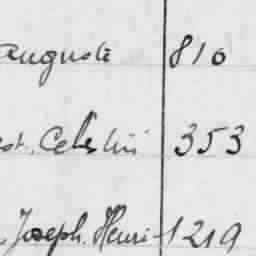 Auguste 810
st. Celestin 353
Joseph. Henri 1219